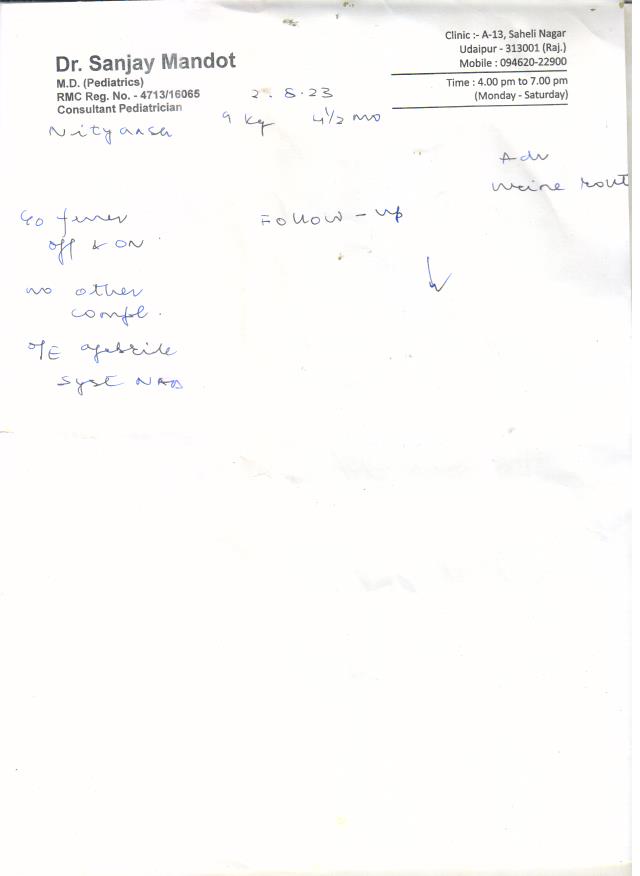 Dr. Sanjay Mandot
M.D. (Pediatrics)
RMC Reg. No. - 4713/16065
Consultant Pediatrician
Clinic :- A-13, Saheli Nagar
Udaipur - 313001 (Raj.)
Mobile : 094620-22900
Time : 4.00 pm to 7.00 pm
(Monday - Saturday)
2.8.23
Nityansh
9 kg 4½ mo
Adv
Urine rout
c/o fever
off & ON
Follow-up
no other
compl.
O/E afebrile
Syst NAD